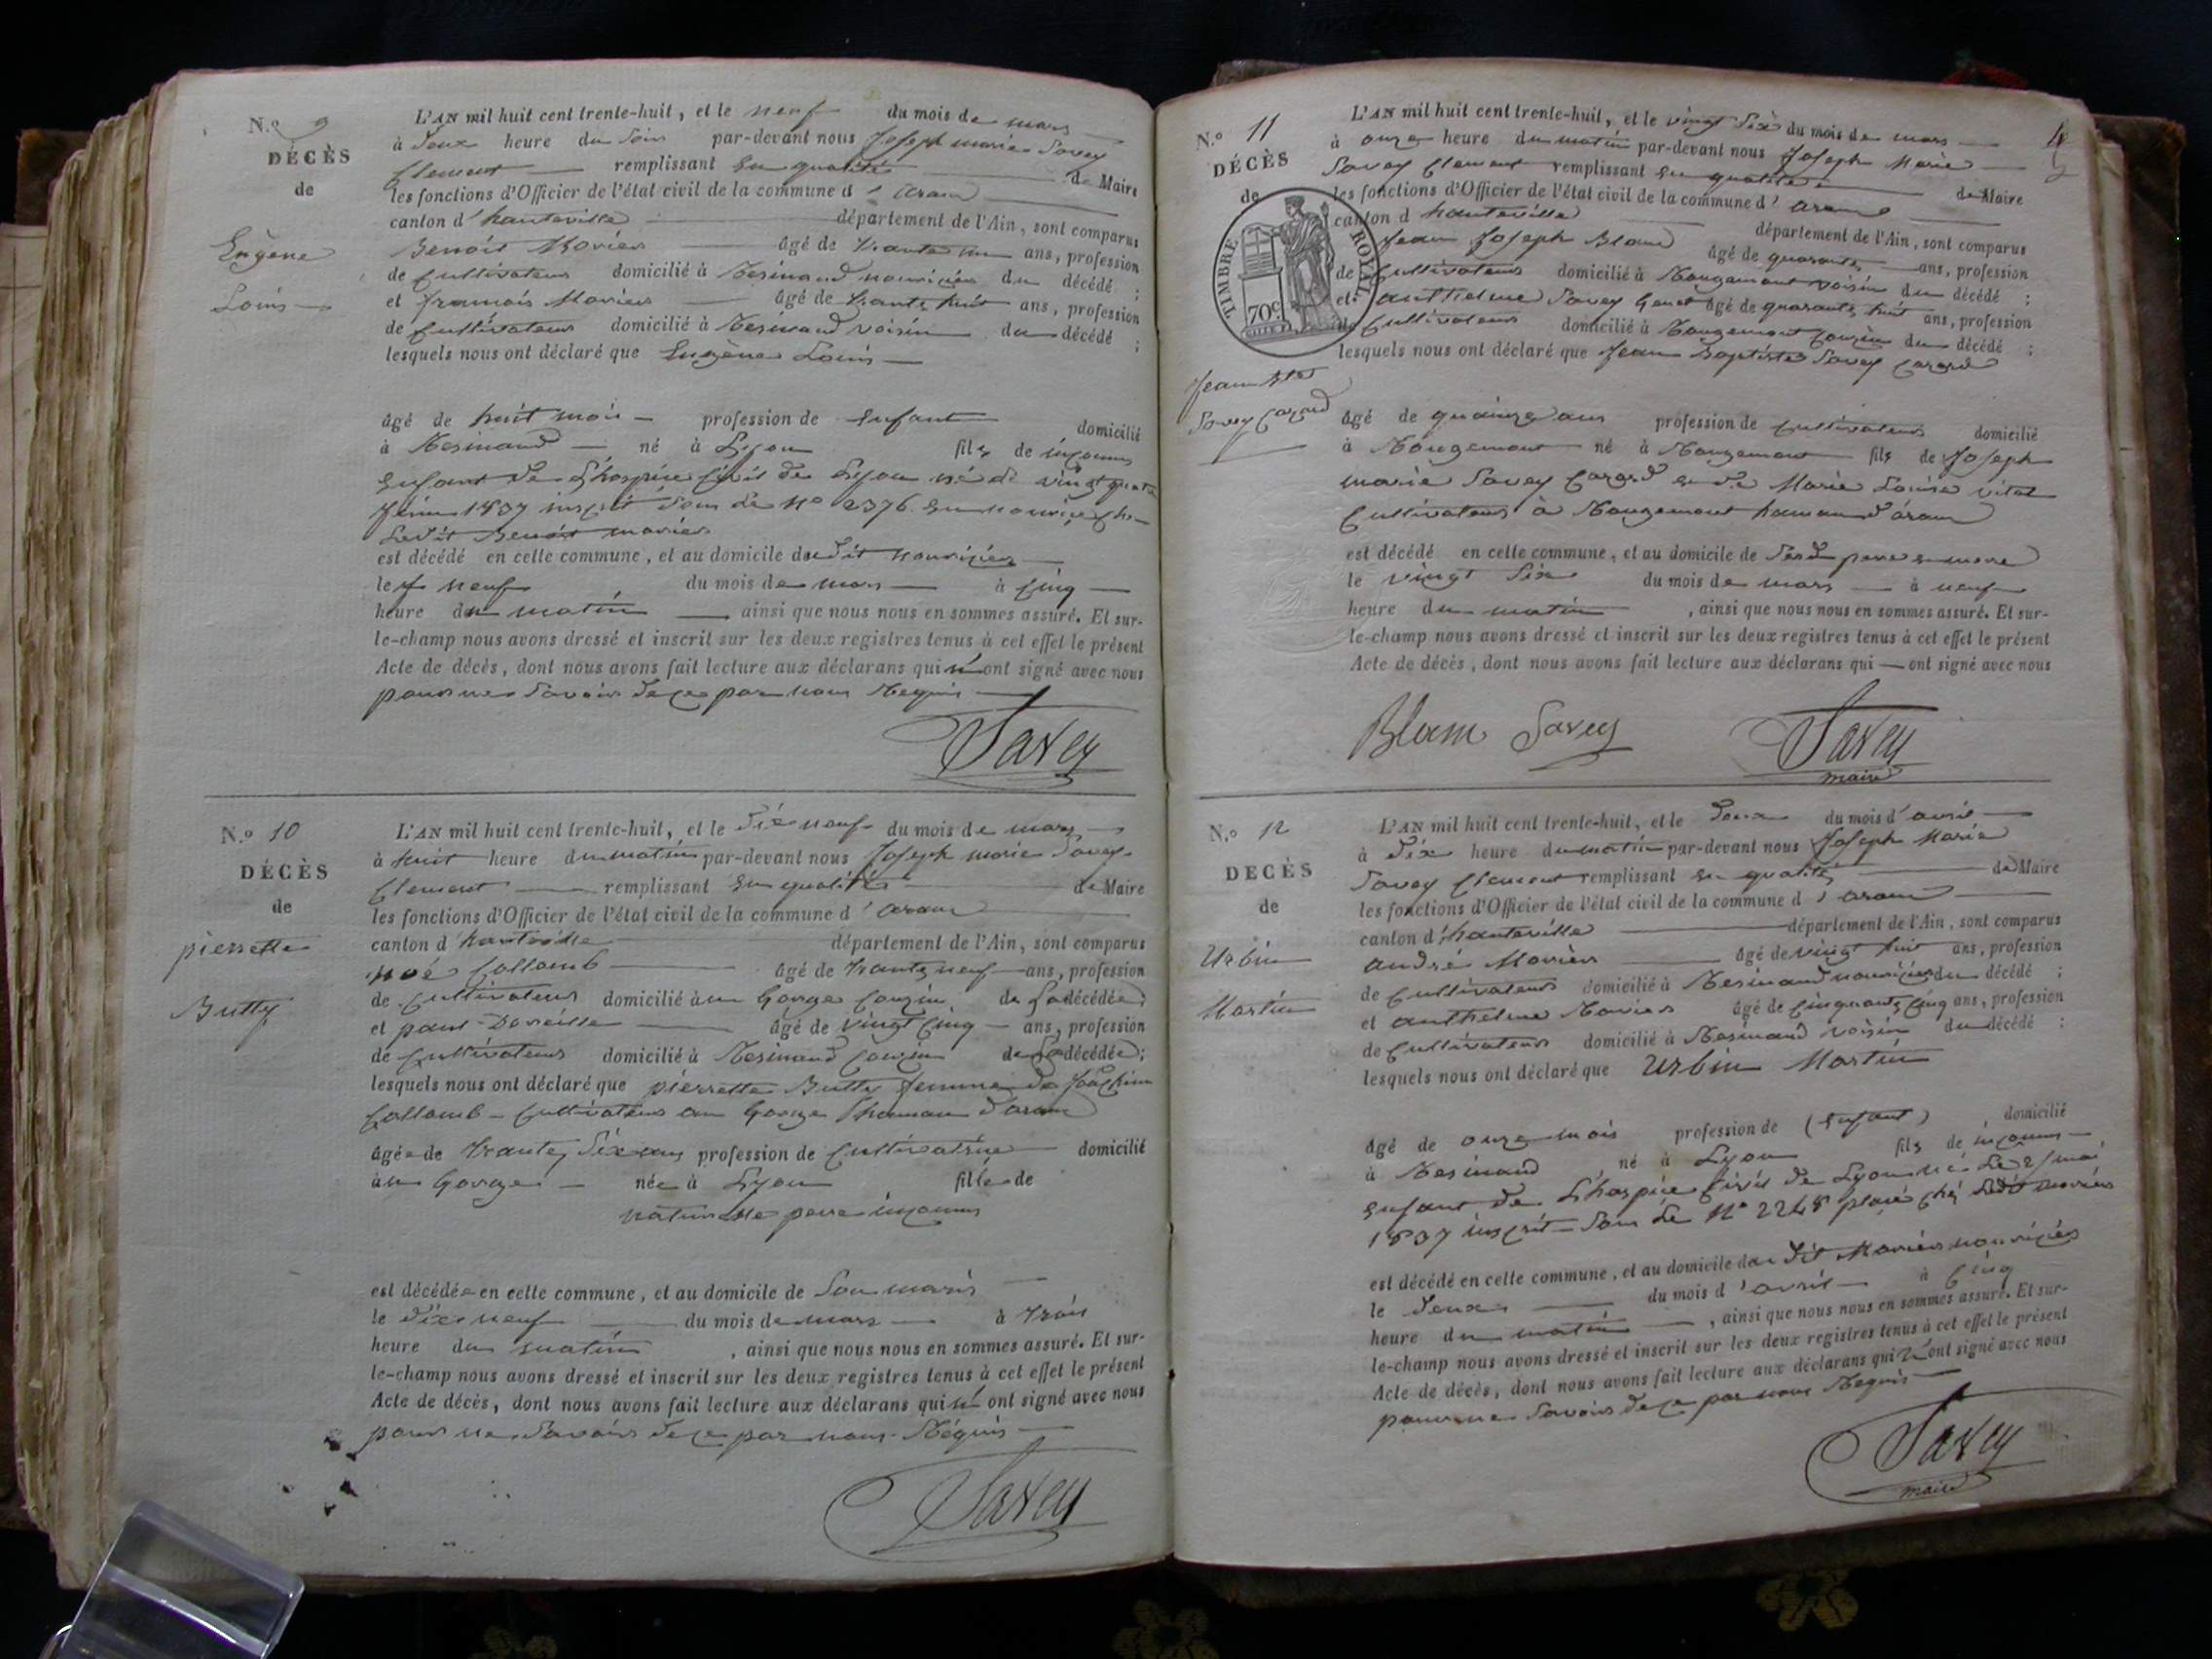 N.o 9
DÉCÈS
de
Eugène
Louis
L'AN mil huit cent trente-huit, et le neuf du mois de mars
à deux heure du soir par-devant nous Joseph marie Savey
Clement remplissant en qualité de Maire
les fonctions d'Officier de l'état civil de la commune d' aran
canton d' hauteville département de l'Ain, sont comparus
Benoit Moriers âgé de trante un ans, profession
de Cultivateur domicilié à Resinand nouricier du décédé ;
et francois Moriers âgé de trante huit ans, profession
de Cultivateur domicilié à Resinand voisin du décédé ;
lesquels nous ont déclaré que Eugène Louis
âgé de huit mois profession de Enfant domicilié
à Resinand né à Lyon fils de inconnus
Enfant de L'hospice Civil de Lyon né le vingt quatre
1837 inscrit sous le N° 2376 en nourice chez
Ledit Benoit moriers
est décédé en cette commune, et au domicile dudit nouricier
le neuf du mois de mars à Cinq
heure du matin ainsi que nous nous en sommes assuré. Et sur-
le-champ nous avons dressé et inscrit sur les deux registres tenus à cet effet le présent
Acte de décès, dont nous avons fait lecture aux déclarans qui n'ont signé avec nous
pour ne savoir de ce par nous Requis
Savey
N.o 10
DÉCÈS
de
pierrette
Butty
L'AN mil huit cent trente-huit, et le dix neuf du mois de mars
à huit heure du matin par-devant nous Joseph marie Savey
Clement remplissant en qualité de Maire
les fonctions d'Officier de l'état civil de la commune d' aran
canton d' hauteville département de l'Ain, sont comparus
Noé Collomb âgé de trante neuf ans, profession
de Cultivateur domicilié à un Gorge Couzin de La décédée ;
et paul âgé de vingt Cinq ans, profession
de Cultivateur domicilié à Resinand Couzin de La décédée ;
lesquels nous ont déclaré que pierrette Butty femme de Joachim
Collomb Cultivateur au Gorge hamau d'aran
âgée de trante Six ans profession de Cultivatrice domicilié
à un Gorge née à Lyon fille de
naturelle pere inconnus
est décédée en cette commune, et au domicile de Son maris
le dix neuf du mois de mars à trois
heure du matin , ainsi que nous nous en sommes assuré. Et sur-
le-champ nous avons dressé et inscrit sur les deux registres tenus à cet effet le présent
Acte de décès, dont nous avons fait lecture aux déclarans qui n'ont signé avec nous
pour ne Savoir de ce par nous Réquis
Savey
N.o 11
DÉCÈS
de
TIMBRE ROYAL
70c
Jean Bte
Savey Cozard
L'AN mil huit cent trente-huit, et le vingt Six du mois de mars
à onze heure du matin par-devant nous Joseph Marie
Savey Clement remplissant en qualité de Maire
les fonctions d'Officier de l'état civil de la commune d' aran
canton d hauteville département de l'Ain, sont comparus
Jean Joseph Blanc âgé de quarante ans, profession
de Cultivateur domicilié à Rougemont voisin du décédé ;
et anthelme Savey Genet âgé de quarante huit ans, profession
de Cultivateur domicilié à Rougemont Couzin du décédé ;
lesquels nous ont déclaré que Jean Baptiste Savey Cozard
âgé de quainze ans profession de Cultivateur domicilié
à Rougemont né à Rougemont fils de Joseph
marie Savey Cozard et de Marie Louise vital
Cultivateurs à Rougemont hamau d'aran
est décédé en cette commune, et au domicile de Sesd pere et mere
le vingt Six du mois de mars à neuf
heure du matin , ainsi que nous nous en sommes assuré. Et sur-
le-champ nous avons dressé et inscrit sur les deux registres tenus à cet effet le présent
Acte de décès, dont nous avons fait lecture aux déclarans qui ont signé avec nous
Blanc Savey Savey
maire
N.o 12
DECÈS
de
Urbin
Martin
L'AN mil huit cent trente-huit, et le deux du mois d'avril
à dix heure du matin par-devant nous Joseph Marie
Savey Clement remplissant en qualité de Maire
les fonctions d'Officier de l'état civil de la commune d' aran
canton d' hauteville département de l'Ain, sont comparus
andré Moriers âgé de vingt huit ans, profession
de Cultivateur domicilié à Resinand nouricier du décédé ;
et anthelme Moriers âgé de Cinquante Cinq ans, profession
de Cultivateur domicilié à Resinand voisin du décédé ;
lesquels nous ont déclaré que Urbin Martin
âgé de onze mois profession de (Enfant) domicilié
à Resinand né à Lyon fils de inconnus
Enfant de L'hospice Civil de Lyon né Le 2 mai
1837 inscrit Sous Le N° 2248 placé chez Ledit moriers
est décédé en cette commune, et au domicile du dit Moriers nouricier
le deux du mois d'avril à Cinq
heure du matin , ainsi que nous nous en sommes assuré. Et sur-
le-champ nous avons dressé et inscrit sur les deux registres tenus à cet effet le présent
Acte de décès, dont nous avons fait lecture aux déclarans qui n'ont signé avec nous
pour ne Savoir de ce par nous Requis
Savey
maire